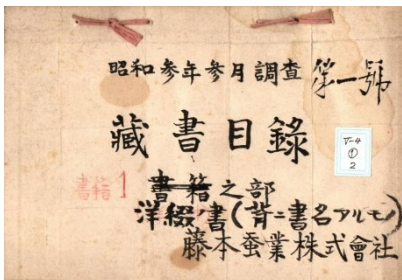 昭和参年参月調査 第一號
藏書目錄
書籍1
書籍之部
洋綴書(背ニ書名アルモノ)
藤本蚕業株式會社
T-4
①
2